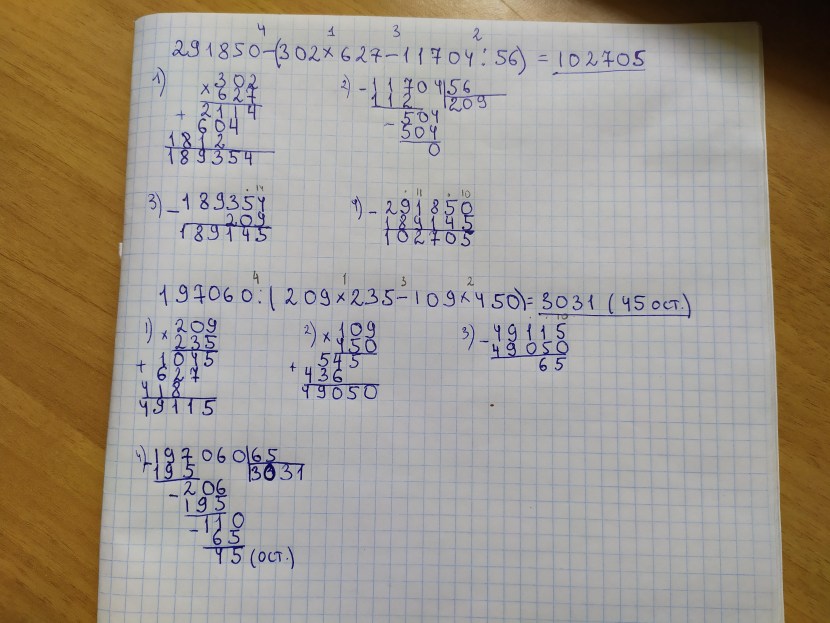 4 1 3 2
291850-(302×627-11704:56) = 102705
1) 302 2) -11704|56
×627 112 209
+ 2114 -504
604 504
1812 0
189354
3) -189354 4) -291850
209 189145
189145 102705
4 1 3 2
197060:(209×235-109×450)=3031 (45 ост.)
1) ×209 2) ×109 3) -49115
235 450 49050
+ 1045 + 545 65
627 436
418 49050
49115
4) -197060|65
195 3031
-206
195
-110
65
45 (ост.)